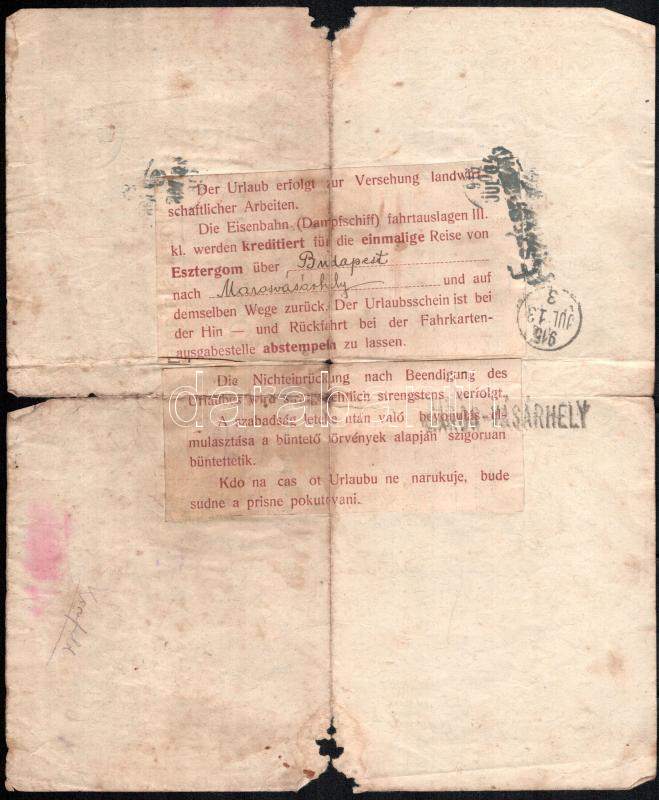 Der Urlaub erfolgt zur Versehung landwirt-
schaftlicher Arbeiten.
Die Eisenbahn (Dampfschiff) fahrtauslagen III.
kl. werden kreditiert für die einmalige Reise von
Esztergom über Budapest
nach Marosvásárhely und auf
demselben Wege zurück. Der Urlaubsschein ist bei
der Hin — und Rückfahrt bei der Fahrkarten-
ausgabestelle abstempeln zu lassen.
Die Nichteinrückung nach Beendigung des
Urlaubes wird strengstens verfolgt.
A szabadság letelte után való bevonulás el-
mulasztása a büntető törvények alapján szigorúan
büntettetik.
Kdo na cas ot Urlaubu ne narukuje, bude
sudne a prisne pokutovani.
MAROS-VÁSÁRHELY
915
JUL 13
3
darabanth